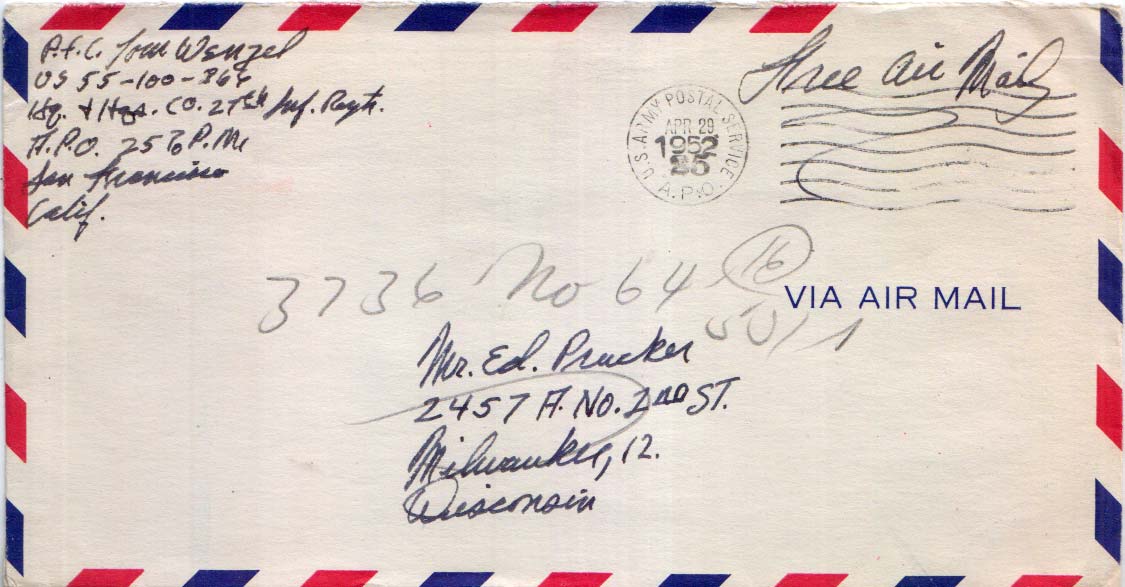 P.f.c. Tom Wenzel
US 55-100-364
Hq. & Hqs. CO. 27th Inf. Regt.
A.P.O. 25 % P.M.
San Francisco
Calif.
Free Air Mail
U.S. ARMY POSTAL SERVICE
APR 29
1952
25
A.P.O.
3736 No 64
16
VIA AIR MAIL
Mr. Ed. Prucker
2457 A. No. 2nd ST.
Milwaukee, 12.
Wisconsin